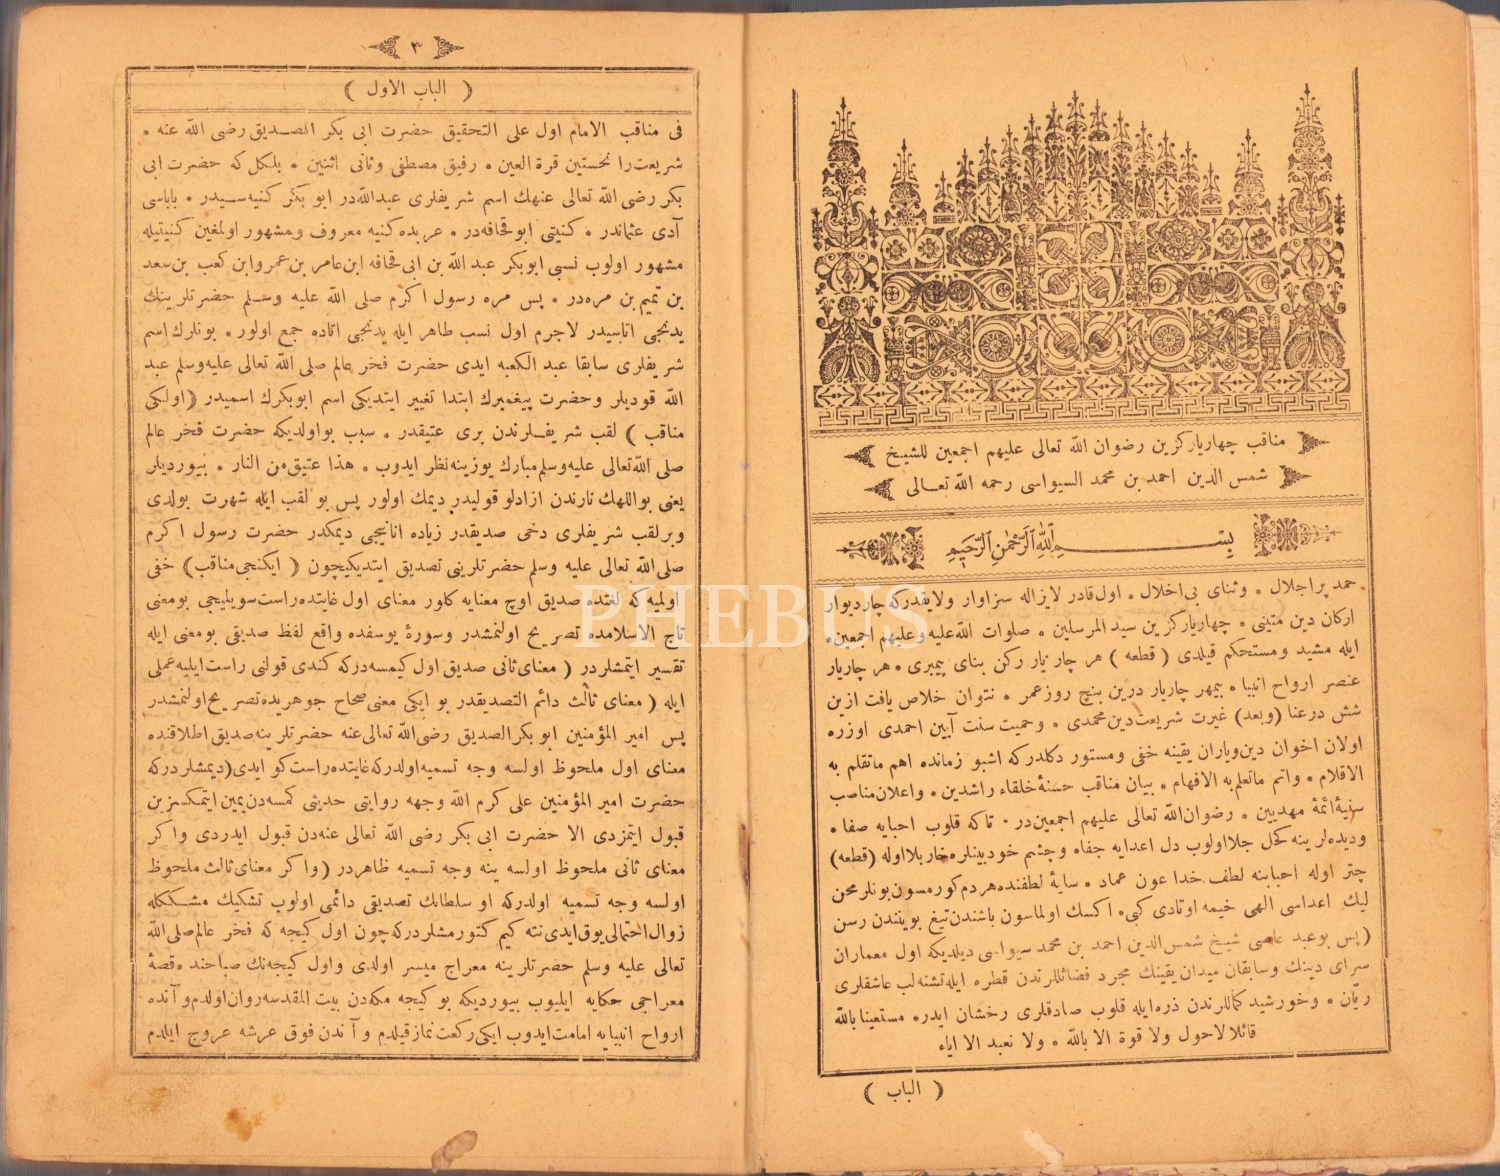 مناقب چهاریارکزین رضوان الله تعالی علیهم اجمعین للشیخ
شمس الدین احمد بن محمد السیواسی رحمه الله تعالی
بسم الله الرحمن الرحیم
حمد پراجلال ٭ وثنای بی اخلال ٭ اول قادر لایزاله سزاوار ولایقدرکه چاردیوار
ارکان دین متینی ٭ چهاریارکزین سید المرسلین ٭ صلوات الله علیه وعلیهم اجمعین٭
ایله مشید ومستحکم قیلدی ( قطعه ) هر چار یار رکن بنای پیمبری ٭ هر چاریار
عنصر ارواح انبیا ٭ بیمهر چاریار درین پنج روزعمر ٭ نتوان خلاص یافت ازین
شش درعنا (وبعد) غیرت شریعت دین محمدی ٭ وحمیت سنت آیین احمدی اوزره
اولان اخوان دین ویاران یقینه خفی ومستور دکلدرکه اشبو زمانده اهم ماتقلم به
الاقلام ٭ واتم ماتعلم به الافهام ٭ بیان مناقب حسنهٔ خلفاء راشدین ٭ واعلان مناصب
سنیهٔ ائمهٔ مهدیین ٭ رضوان الله تعالی علیهم اجمعین در ٭ تاکه قلوب احبایه صفا ٭
ودیده لرینه کحل جلا اولوب دل اعدایه جفاه وچشم خودبینلره خار بلا اوله (قطعه)
چتر اوله احبابنه لطف خدا عون عماد ٭ سایهٔ لطفنده هردم کورمسون بونلر محن
لیك اعداسی الهی خیمه اوتادی کبی ٭ اکسك اولماسون باشندن تیغ بویندن رسن
(پس بوعبد عاصی شیخ شمس الدین احمد بن محمد سیواسی دیلدیکه اول معماران
سرای دینك وسابقان میدان یقینك مجرد فضائللرندن قطره ایله تشنه لب عاشقلری
ریّان ٭ وخورشید کماللرندن ذره ایله قلوب صادقلری رخشان ایده ٭ مستعینا بالله
قائلا لاحول ولا قوة الا بالله ٭ ولا نعبد الا ایاه
( الباب )
٣
( الباب الاول )
فی مناقب الامام اول علی التحقیق حضرت ابی بکر الصدیق رضی الله عنه ٭
شریعت را نخستین قرة العین ٭ رفیق مصطفی وثانی اثنین ٭ بلکل که حضرت ابی
بکر رضی الله تعالی عنهك اسم شریفلری عبدالله در ابو بکر کنیه سیدر ٭ باباسی
آدی عثماندر ٭ کنیتی ابوقحافه در ٭ عربده کنیه معروف ومشهور اولمغین کنیتیله
مشهور اولوب نسبی ابوبکر عبد الله بن ابی قحافه ابن عامر بن عمرو ابن کعب بن سعد
بن تمیم بن مره در ٭ پس مره رسول اکرم صلی الله علیه وسلم حضرتلرینك
یدنجی اتاسیدر لاجرم اول نسب طاهر ایله یدنجی اتاده جمع اولور ٭ بونلرك اسم
شریفلری سابقا عبد الکعبه ایدی حضرت فخر عالم صلی الله تعالی علیه وسلم عبد
الله قودیلر وحضرت پیغمبرك ابتدا تغییر ایتدیکی اسم ابوبکرك اسمیدر (اولکی
مناقب ) لقب شریفلرندن بری عتیقدر ٭ سبب بو اولدیکه حضرت فخر عالم
صلی الله تعالی علیه وسلم مبارك یوزینه نظر ایدوب ٭ هذا عتیق من النار ٭ بیوردیلر
یعنی بو اللهك نارندن ازادلو قولیدر دیمك اولور پس بو لقب ایله شهرت بولدی
وبرلقب شریفلری دخی صدیقدر زیاده انانیجی دیمکدر حضرت رسول اکرم
صلی الله تعالی علیه وسلم حضرتلرینی تصدیق ایتدیکیچون ( ایکنجی مناقب) خفی
اولمیه که لغتده صدیق اوچ معنایه کلور معنای اول غایتده راست سویلیجی بومعنی
تاج الاسلامده تصریح اولنمشدر وسورهٔ یوسفده واقع لفظ صدیقی بومعنی ایله
تفسیر ایتمشلردر ( معنای ثانی صدیق اول کیمسه درکه کندی قولنی راست ایلیه عملی
ایله ( معنای ثالث دائم التصدیقدر بو ایکی معنی صحاح جوهریده تصریح اولنمشدر
پس امیر المؤمنین ابو بکر الصدیق رضی الله تعالی عنه حضرتلرینه صدیق اطلاقنده
معنای اول ملحوظ اولسه وجه تسمیه اولدرکه غایتده راست کو ایدی (دیمشلردرکه
حضرت امیر المؤمنین علی کرم الله وجهه روایتی حدیثی کمسه دن یمین ایتمکسزین
قبول ایتمزدی الا حضرت ابی بکر رضی الله تعالی عنه دن قبول ایدردی واکر
معنای ثانی ملحوظ اولسه ینه وجه تسمیه ظاهردر (واکر معنای ثالث ملحوظ
اولسه وجه تسمیه اولدرکه او سلطانك تصدیقی دائمی اولوب تشکیك مشککله
زوال احتمالی یوق ایدی نته کیم کتورمشلردرکه چون اول کیجه که فخر عالم صلی الله
تعالی علیه وسلم حضرتلرینه معراج میسر اولدی واول کیجه نك صباحنده قصهٔ
معراجی حکایه ایلیوب بیوردیکه بو کیجه مکه دن بیت المقدسه روان اولدم وآنده
ارواح انبیایه امامت ایدوب ایکی رکعت نماز قیلدم وآندن فوق عرشه عروج ایلدم
PHEBUS